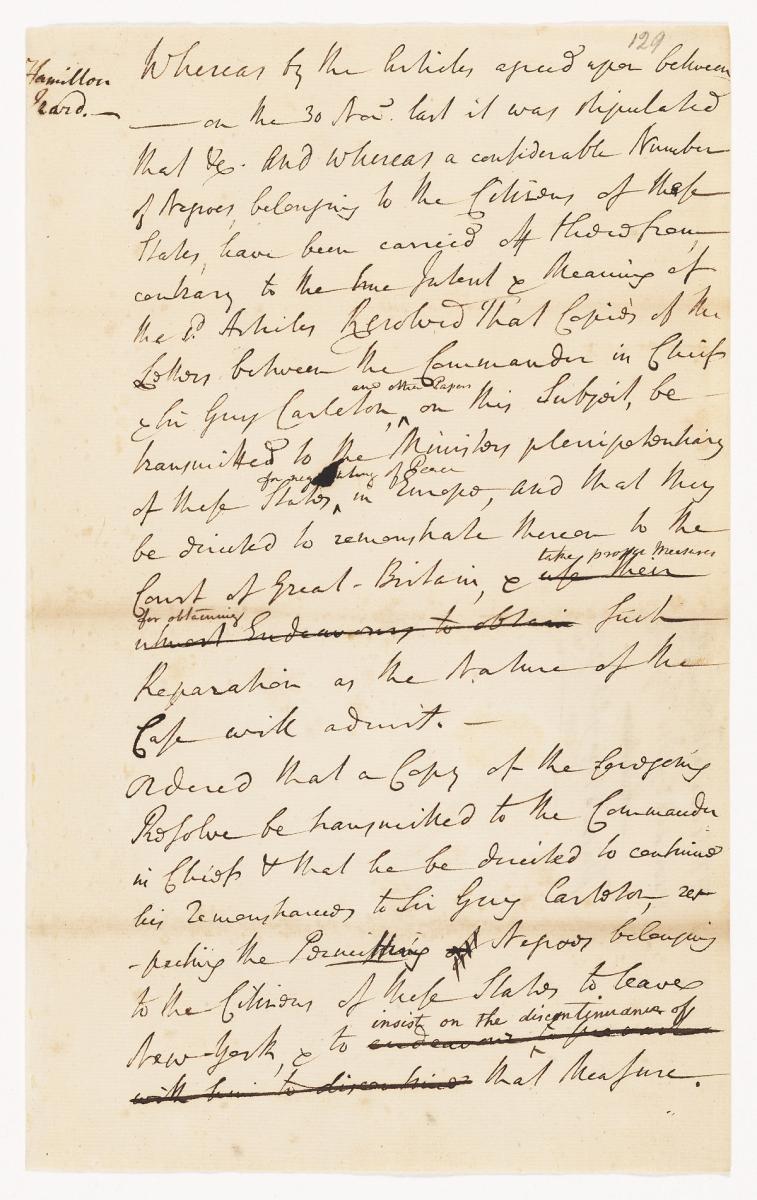 129
Hamilton
Whereas by the Articles agreed upon between
— on the 30 Nov.r last it was stipulated
that &c. And whereas a considerable Number
of Negroes, belonging to the Citizens of these
States, have been carried off therefrom,
contrary to the true Intent & Meaning of
the s.d Articles Resolved That Copies of the
Letters between the Commander in Chief
and other Papers
& Sir Guy Carleton, ^ on this Subject, be
transmitted to the Ministers plenipotentiary
for negotiating of Peace
of these States, ^ in Europe, and that they
be directed to remonstrate thereon to the
take proper Measures
Court of Great-Britain, & use their
for obtaining
utmost Endeavours to obtain such
Reparation as the Nature of the
Case will admit. —
Ordered that a Copy of the foregoing
Resolve be transmitted to the Commander
in Chief & that he be directed to continue
his remonstrances to Sir Guy Carleton, res-
-pecting the Permitting Negroes belonging
to the Citizens of these States to leave
insist on the discontinuance of
New-York, & to endeavour to prevail
with him to discontinue that Measure.